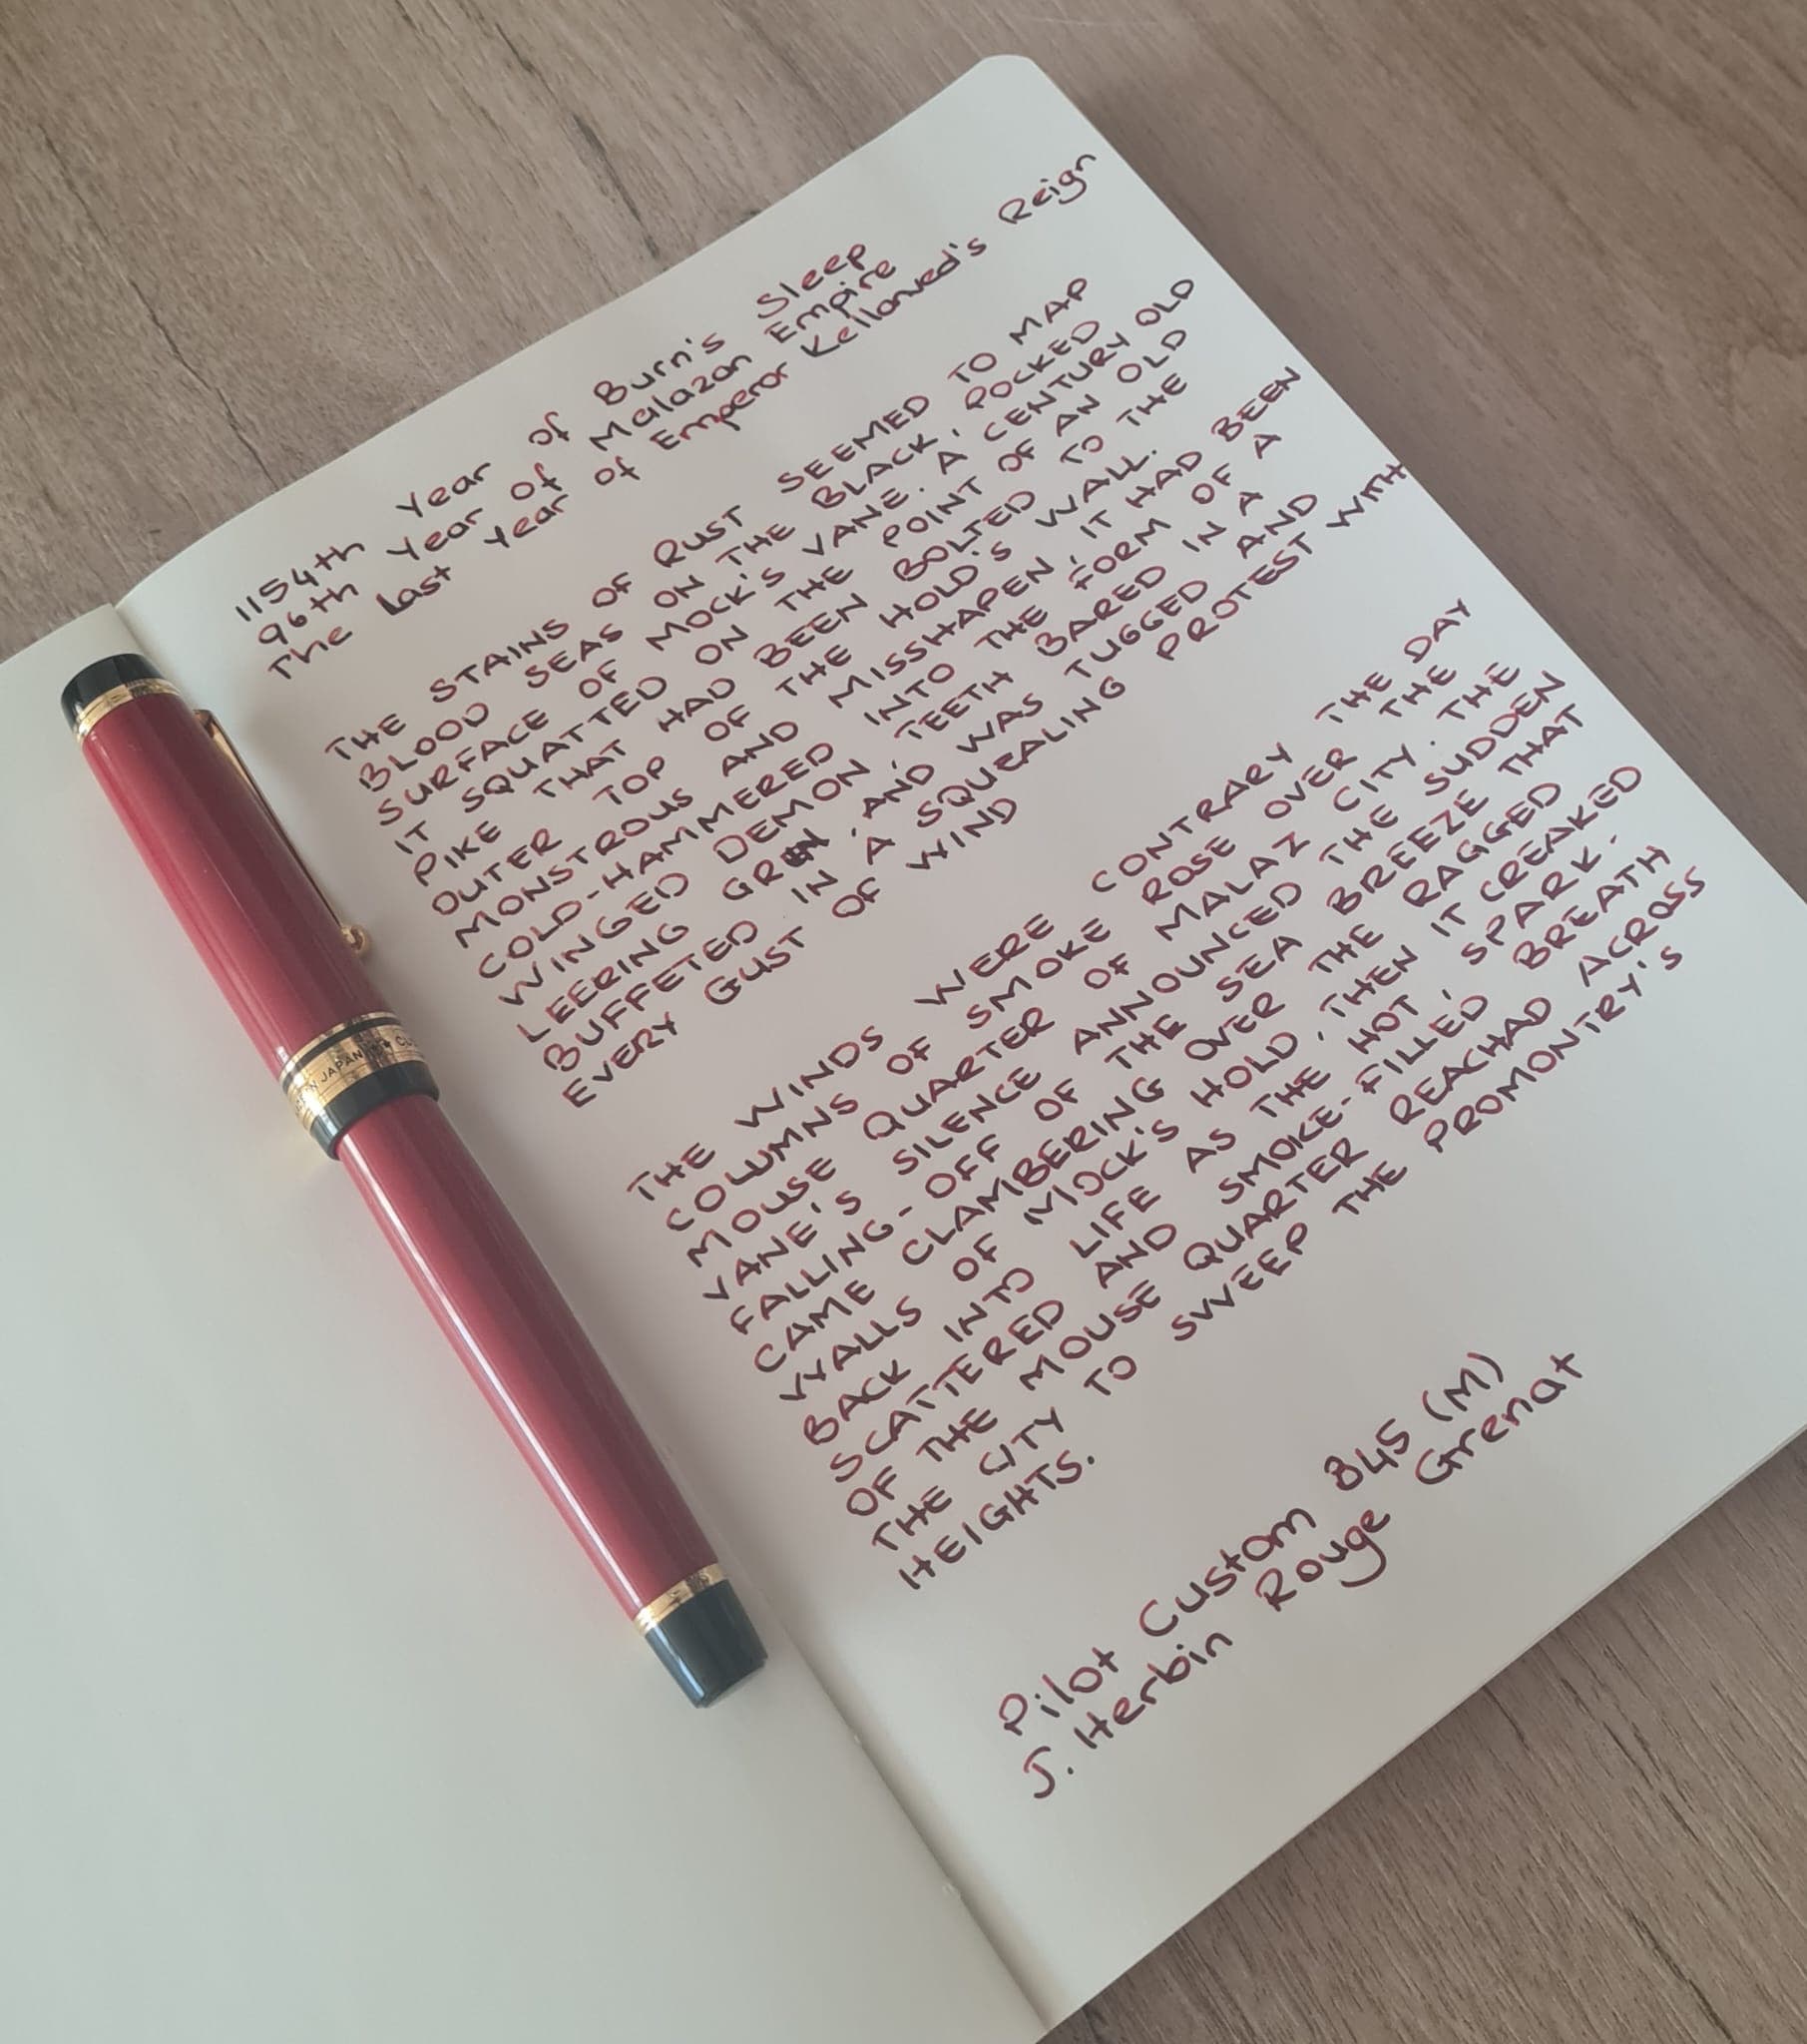 1154th Year of Burn's Sleep
96th Year of Malazan Empire
The Last Year of Emperor Kellanved's Reign
THE STAINS OF RUST SEEMED TO MAP
BLOOD SEAS ON THE BLACK, POCKED
SURFACE OF MOCK'S VANE. A CENTURY OLD
IT SQUATTED ON THE POINT OF AN OLD
PIKE THAT HAD BEEN BOLTED TO THE
OUTER TOP OF THE HOLD'S WALL.
MONSTROUS AND MISSHAPEN, IT HAD BEEN
COLD-HAMMERED INTO THE FORM OF A
WINGED DEMON, TEETH BARED IN A
LEERING GREN, AND WAS TUGGED AND
BUFFETED IN A SQUEALING PROTEST WITH
EVERY GUST OF WIND
THE WINDS WERE CONTRARY THE DAY
COLUMNS OF SMOKE ROSE OVER THE
MOUSE QUARTER OF MALAZ CITY. THE
VANE'S SILENCE ANNOUNCED THE SUDDEN
FALLING-OFF OF THE SEA BREEZE THAT
CAME CLAMBERING OVER THE RAGGED
WALLS OF MOCK'S HOLD, THEN IT CREAKED
BACK INTO LIFE AS THE HOT, SPARK-
SCATTERED AND SMOKE-FILLED BREATH
OF THE MOUSE QUARTER REACHAD ACROSS
THE CITY TO SWEEP THE PROMONTRY'S
HEIGHTS.
Pilot Custom 845 (M)
J. Herbin Rouge Grenat
JAPAN ★★ CU